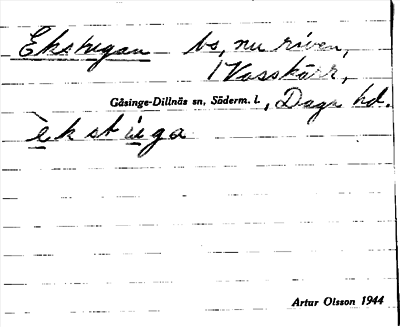 Ekstugan bs, nu riven,
i Vasskärr,
Gåsinge-Dillnäs sn, Söderm. l., Daga hd.
èkstùga
Artur Olsson 1944